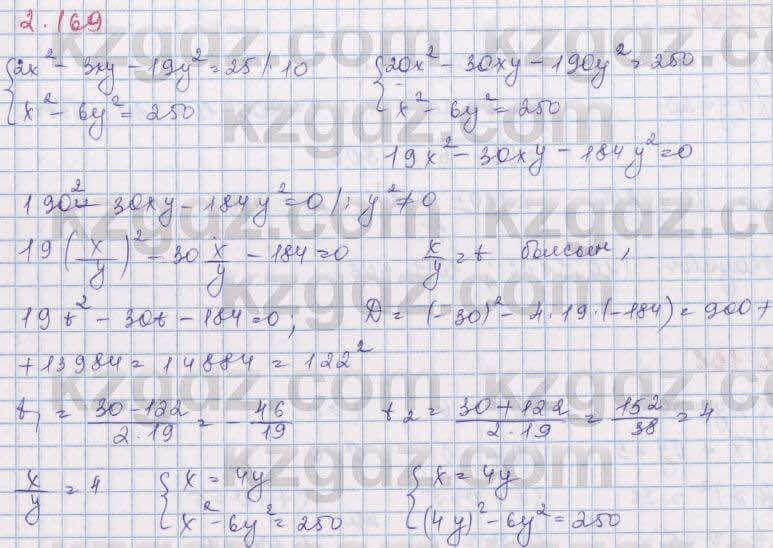 2.169
{2x² - 3xy - 19y² = 25 /·10 {20x² - 30xy - 190y² = 250
{x² - 6y² = 250 {x² - 6y² = 250
19x² - 30xy - 184y² = 0
190x² - 30xy - 184y² = 0 / : y² ≠ 0
19(x/y)² - 30 x/y - 184 = 0 x/y = t болсын,
19t² - 30t - 184 = 0; D = (-30)² - 4·19·(-184) = 900 +
+ 13984 = 14884 = 122²
t₁ = (30 - 122)/(2·19) = - 46/19 t₂ = (30 + 122)/(2·19) = 152/38 = 4
x/y = 4 {x = 4y {x = 4y
{x² - 6y² = 250 {(4y)² - 6y² = 250
kzgdz.com